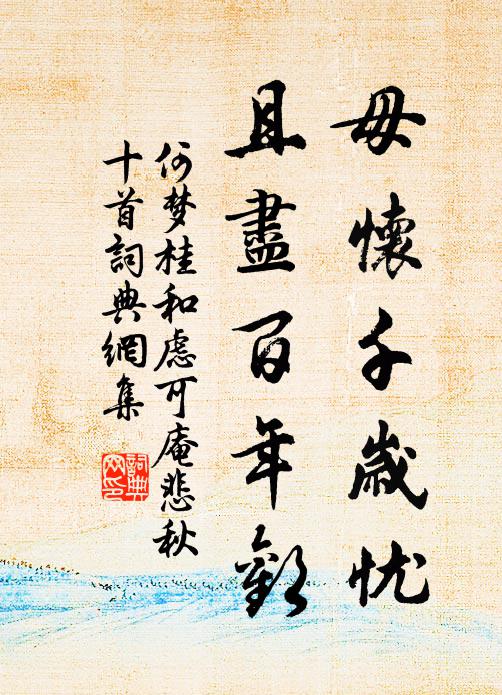 毋懷千歲忧
且盡百年歡
何梦桂和慮可庵悲秋
十首詞典網集
詞典网印